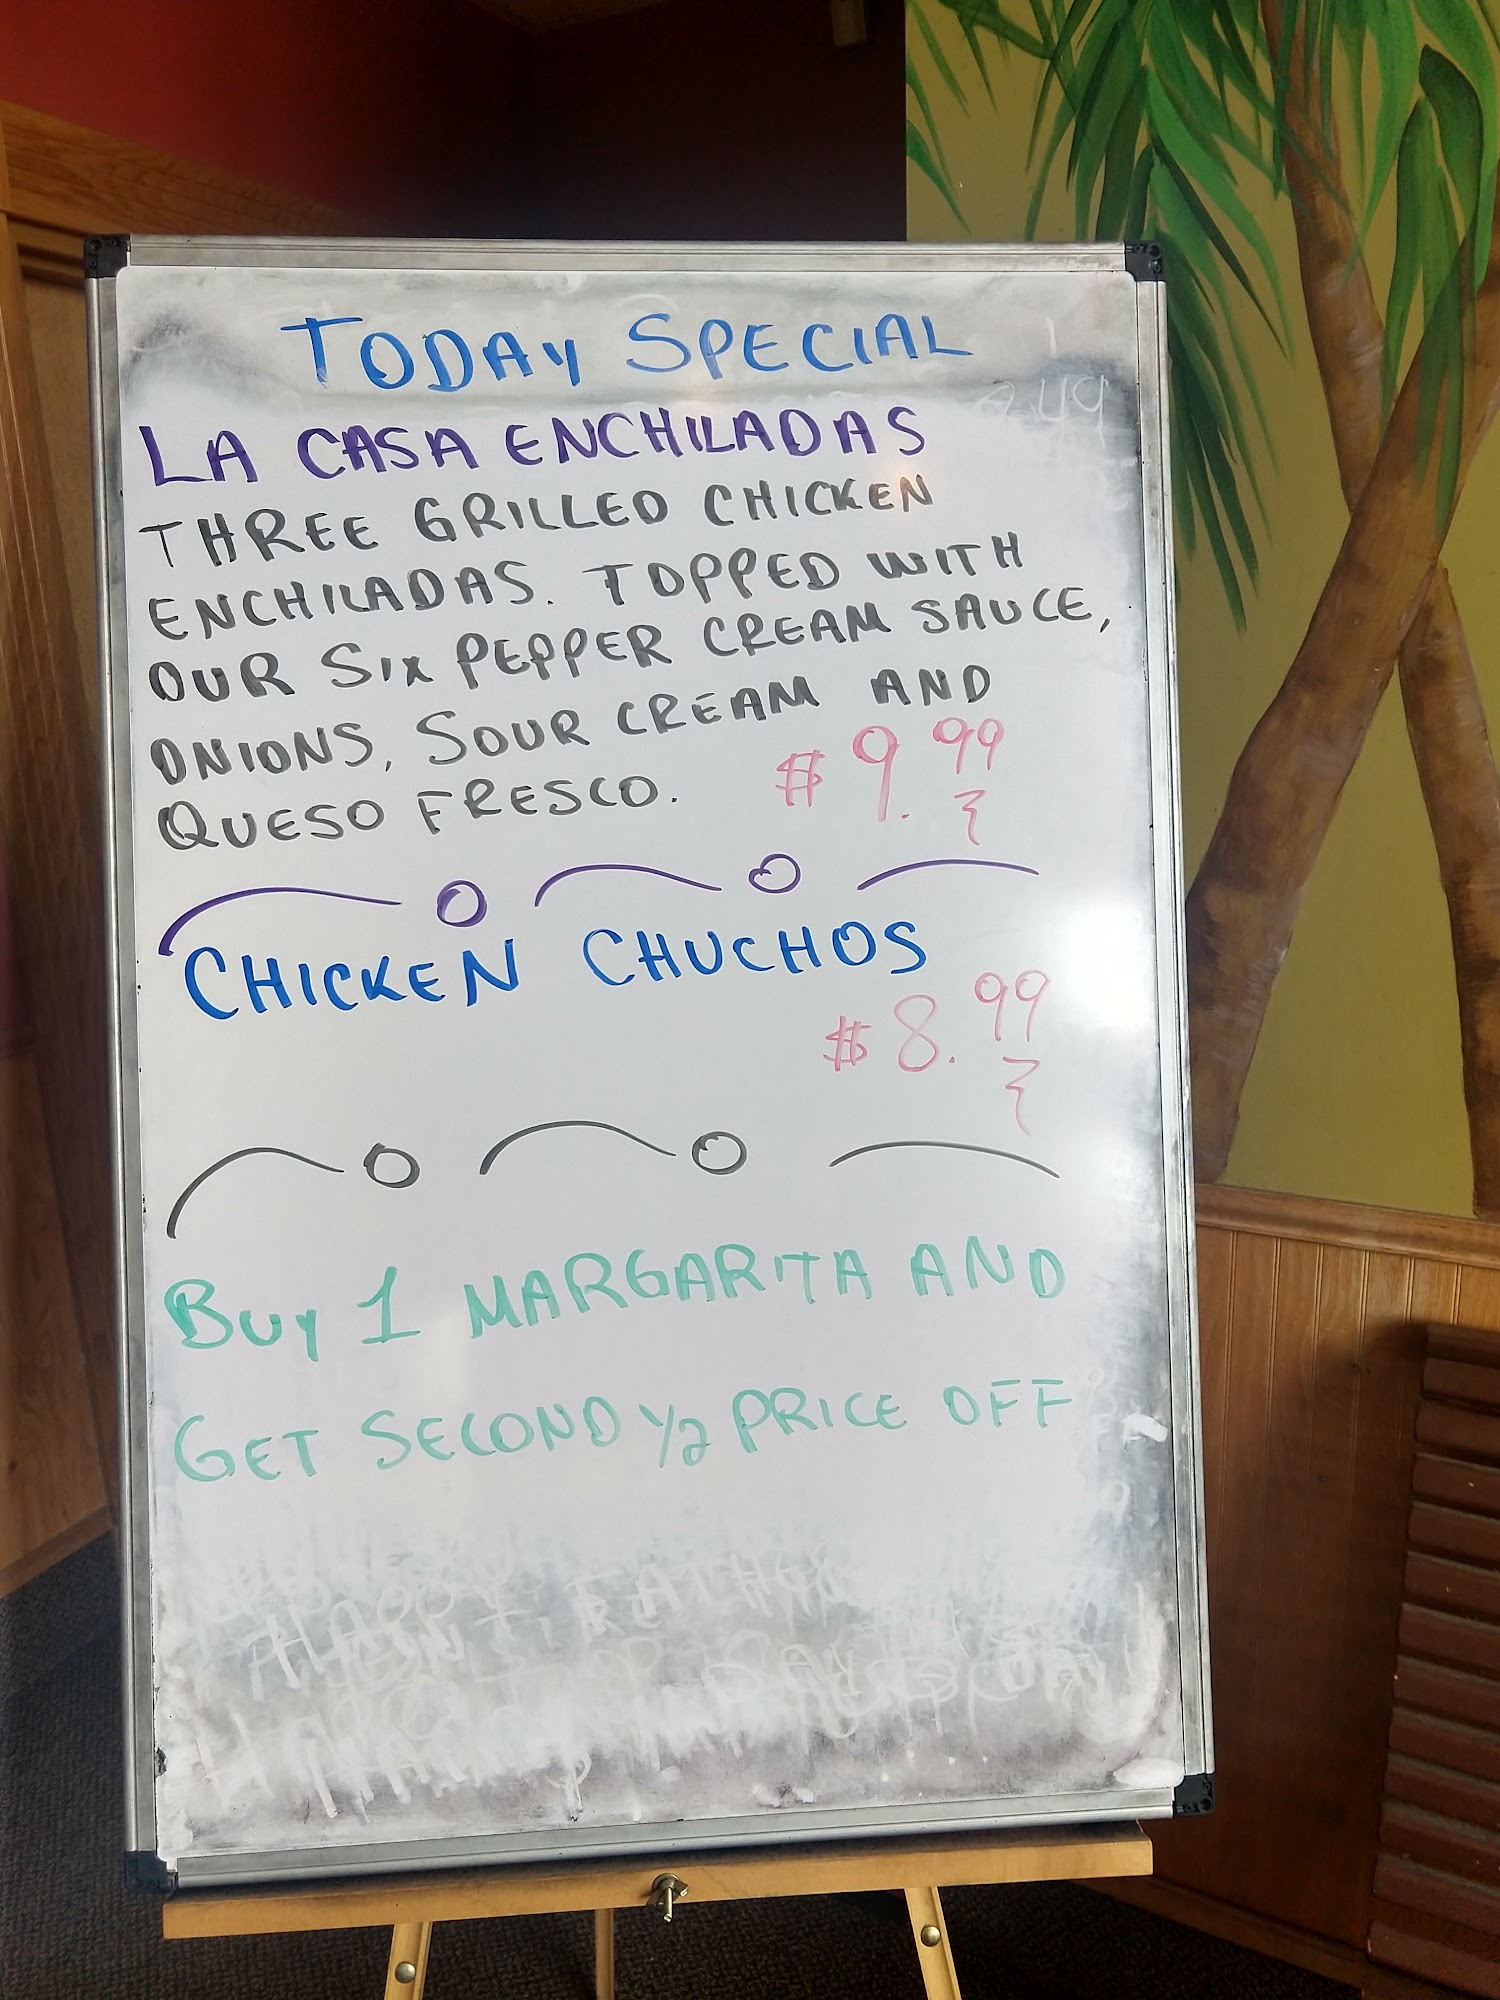 TODAY SPECIAL
LA CASA ENCHILADAS
THREE GRILLED CHICKEN
ENCHILADAS. TOPPED WITH
OUR SIX PEPPER CREAM SAUCE,
ONIONS, SOUR CREAM AND
QUESO FRESCO. $9.99
CHICKEN CHUCHOS
$8.99
BUY 1 MARGARITA AND
GET SECOND 1/2 PRICE OFF
HAPPY FATHER